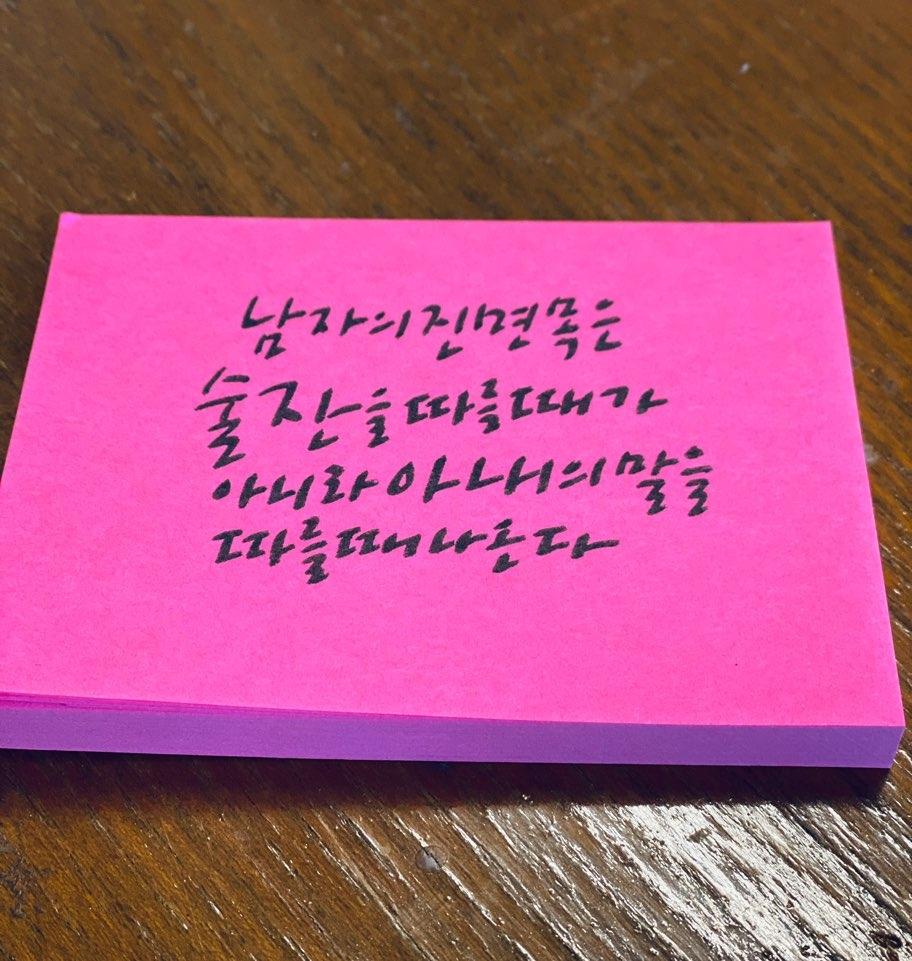 남자의 진면목은
술잔을 따를 때가
아니라 아내의 말을
따를 때 나온다